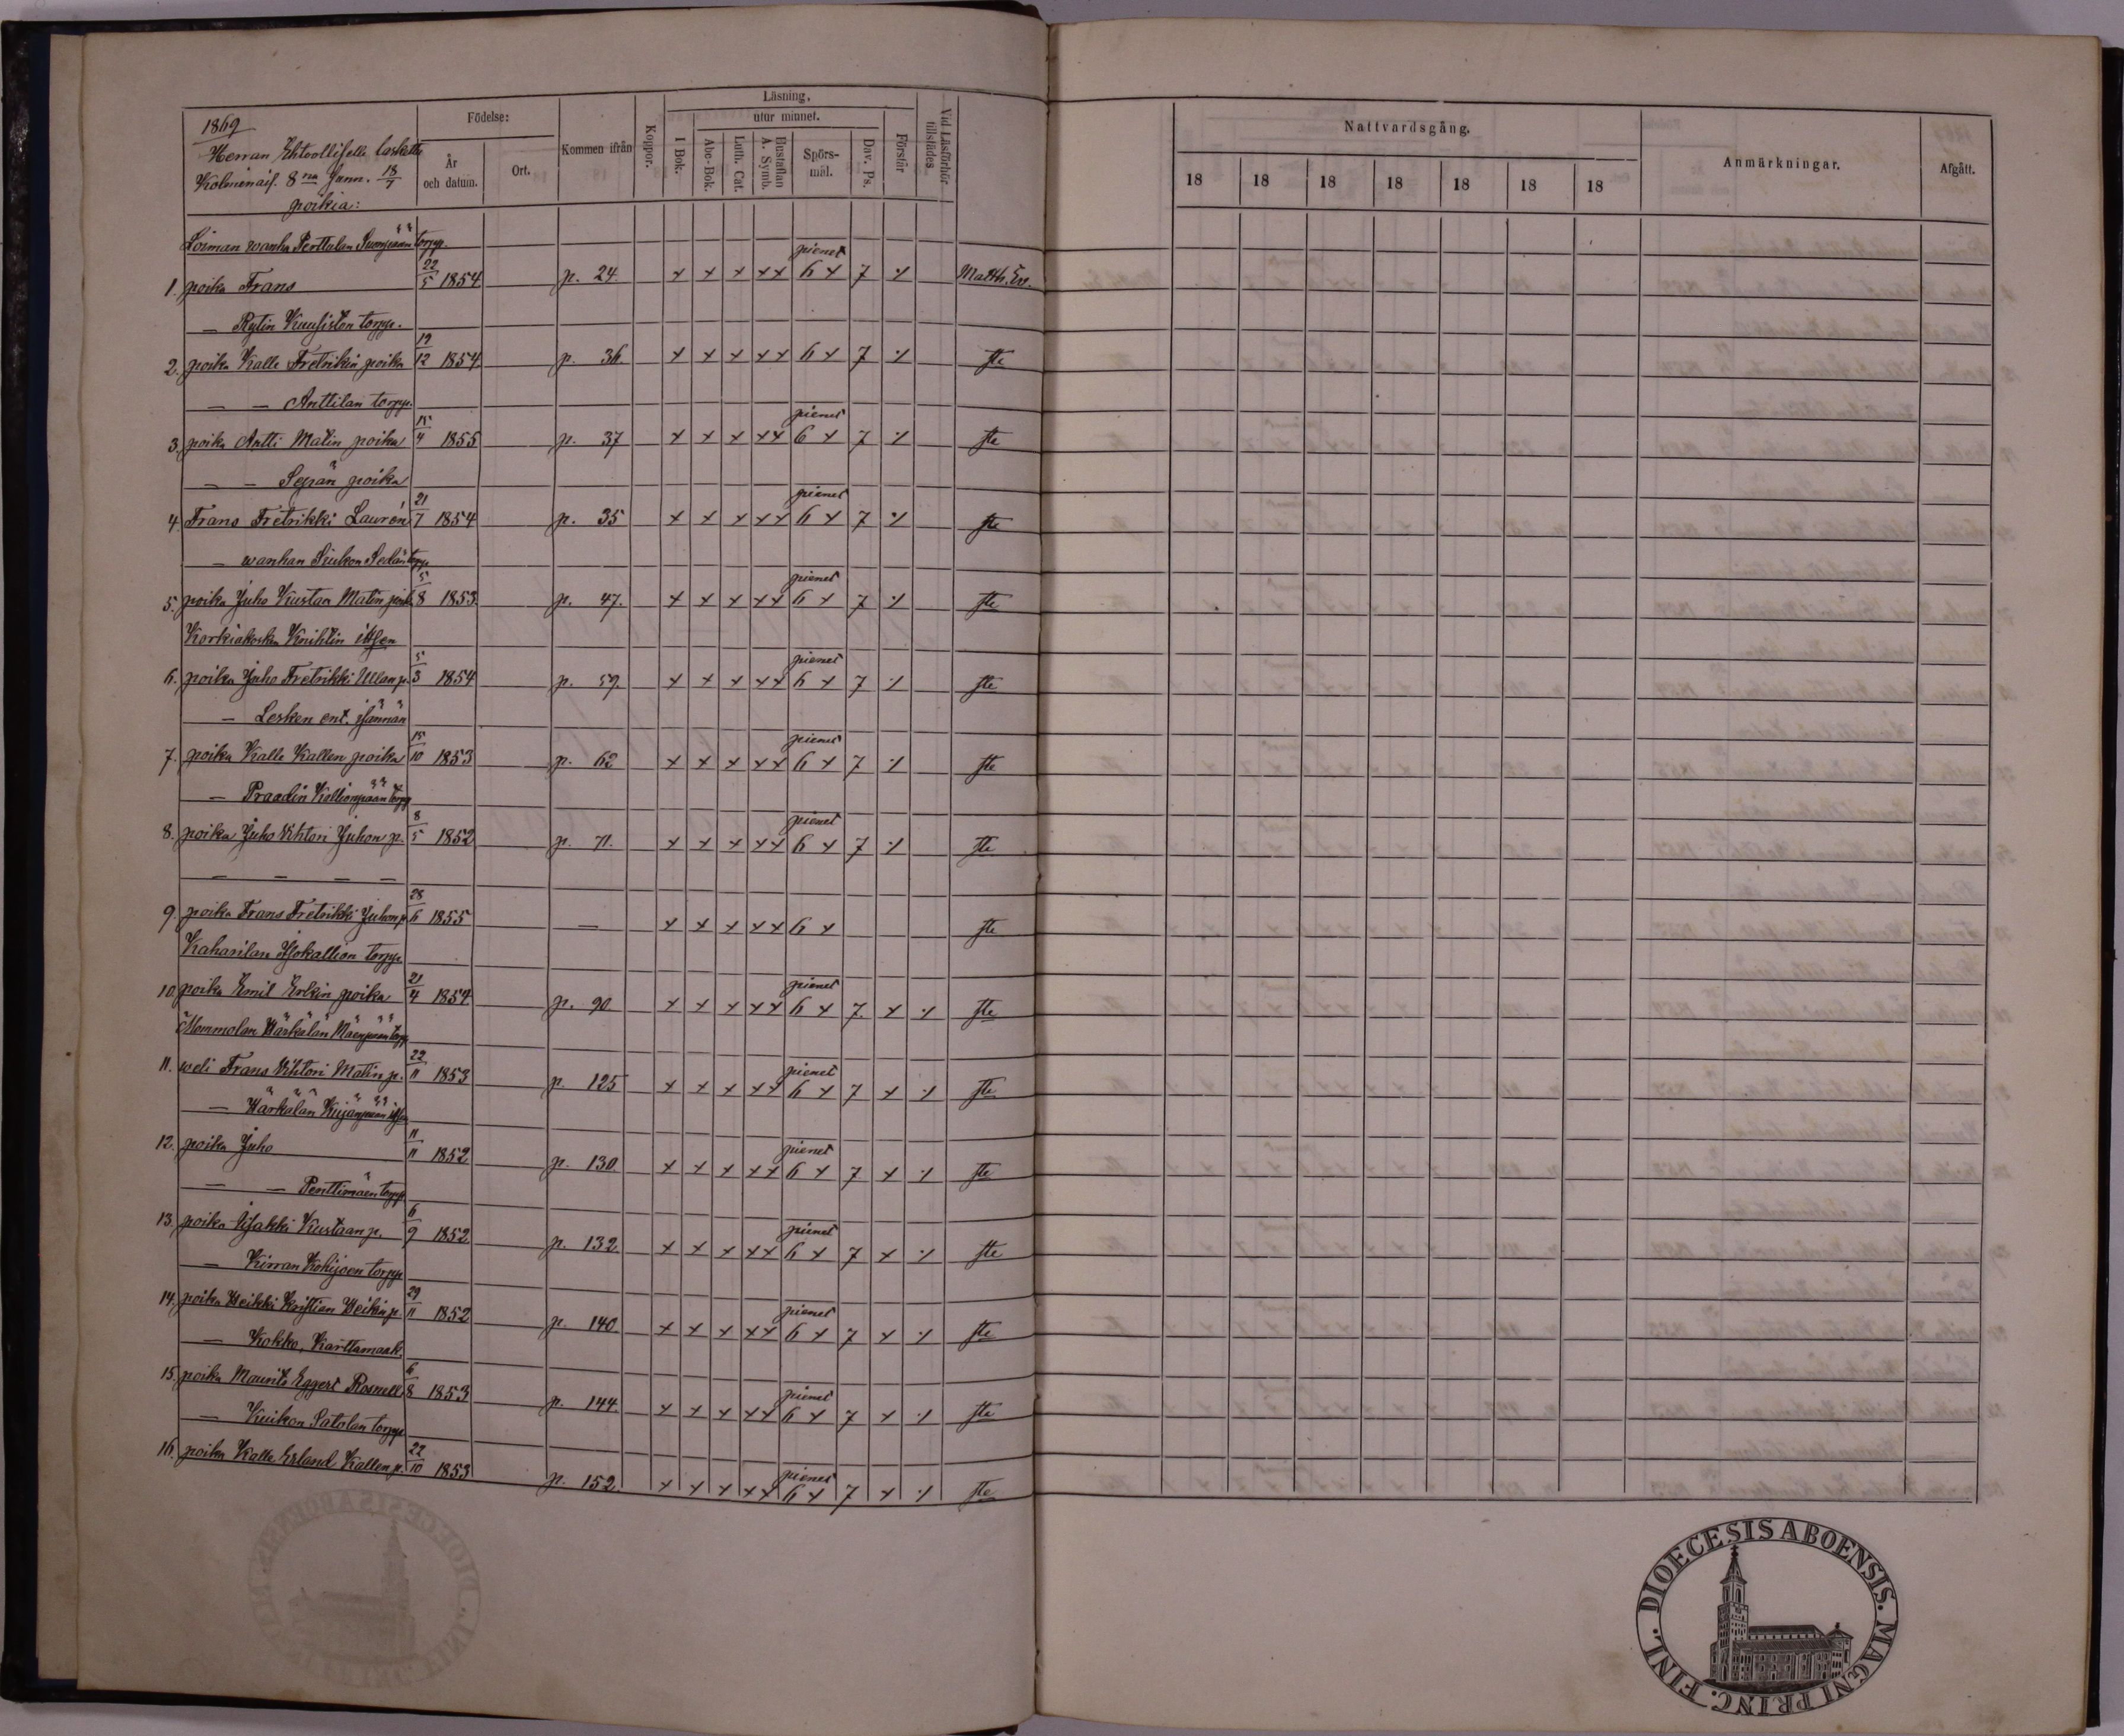 1869
Herran Ehtoolliselle lasketti
Kolminais. 8na Sunn. 18/7
poikia:
Födelse:
År och datum.
Ort.
Kommen ifrån
Koppor.
Läsning.
I Bok.
utur minnet.
Abc-Bok.
Luth. Cat.
Hustaflan A. Symb.
Spörsmål.
Dav. Ps.
Förstår
Vid Läsförhör tillstädes.
Nattvardsgång.
18 18 18 18 18 18 18
Anmärkningar.
Afgått.
Loiman wanha Perttulan torpp.
1. poika Frans 22/5 1854 p. 24. x x x x x pienet 6 x 7 ·/. Matth. Ev.
— Rytin Kuusiston torpp.
2. poika Kalle Fretrikin poika 19/12 1854. p. 36. x x x x x 6 x 7 ·/. ste
— — Anttilan torpp.
3. poika Antti Matin poika 15/4 1855 p. 37 x x x x x pienet 6 x 7 ·/. ste
— — Sepän poika
4. Frans Fretrikki Laurén 21/7 1854 p. 35 x x x x x pienet 6 x 7 ·/. ste
— wanhan torpp.
5. poika Juho Kustaa Matin poik. 5/8 1853. p. 47. x x x x x pienet 6 x 7 ·/. ste
Korkiakosken Knihtin itsen
6. poika Juho Fretrikki Ullan p. 5/3 1854 p. 59. x x x x x pienet 6 x 7 ·/. ste
— Lesken ent. isännän
7. poika Kalle Kallen poika 15/10 1853 p. 62 x x x x x pienet 6 x 7 ·/. ste
— Praadin Kallionpään torpp
8. poika Juho Vihtori Juhon p. 8/5 1852 p. 71. x x x x x pienet 6 x 7 ·/. ste
— — — —
9. poika Frans Fretrikki Juhon p. 28/6 1855 — x x x x x 6 x ste
Kaharilan Isokallion torpp.
10. poika Emil Erkin poika 21/4 1854 p. 90 x x x x x pienet 6 x 7. x ·/. ste
Mommolan Härkälän Mäenpään torpp
11. weli Frans Vihtori Matin p. 22/11 1853 p. 125 x x x x x pienet 6 x 7 x ·/. ste
— Härkälän Kujanpään itsen
12. poika Juho 11/11 1852 p. 130 x x x x x pienet 6 x 7 x ·/. ste
— — Penttimäen torpp
13. poika Iisakki Kustaan p. 6/9 1852 p. 132. x x x x x pienet 6 x 7 x ·/. ste
— Kirran Kohijoen torpp
14. poika Heikki Kristian Heikin p. 29/11 1852 p. 140 x x x x x pienet 6 x 7 x ·/. ste
— Kokko, Karttamaak.
15. poika Maurits Eggert Rosnell 6/8 1853 p. 144. x x x x x pienet 6 x 7 x ·/. ste
— Kuikon Satolan torpp
16. poika Kalle Erland Kallen p. 22/10 1853 p. 152. x x x x x pienet 6 x 7 x ·/. ste
DIOECESIS ABOENSIS. MAGNI PRINC. FINL.